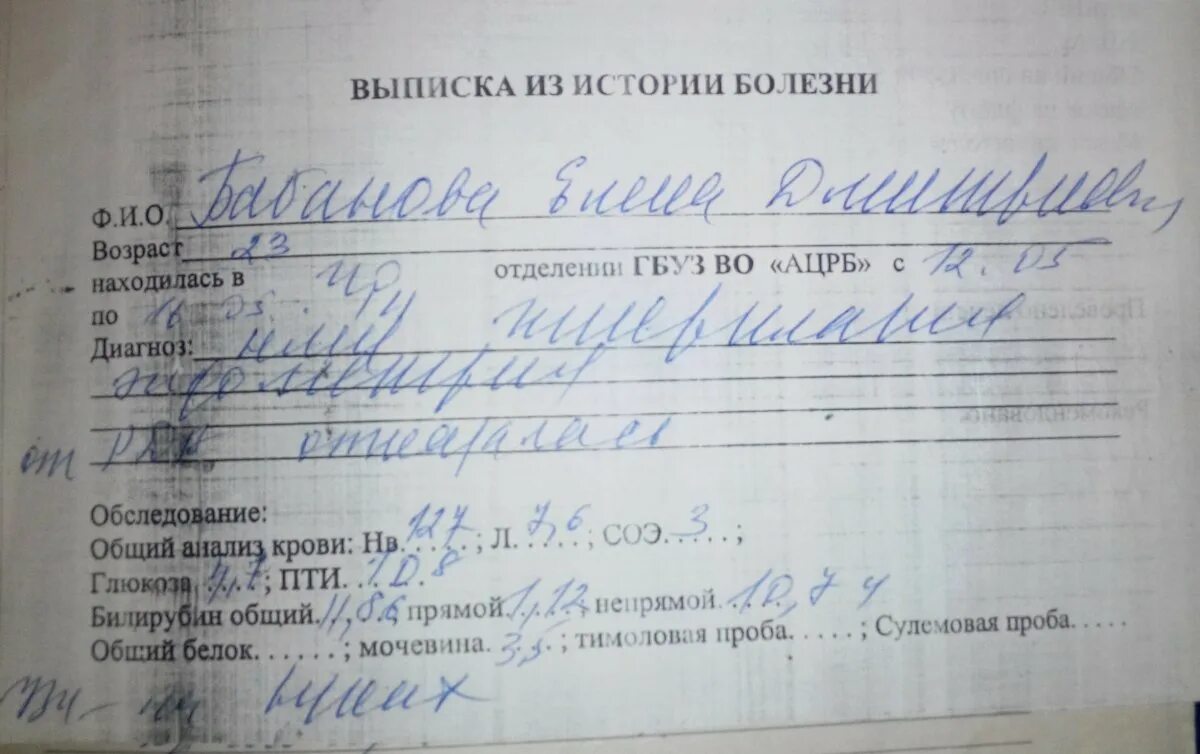 ВЫПИСКА ИЗ ИСТОРИИ БОЛЕЗНИ
Ф.И.О. Бабанова Елена Дмитриевн
Возраст 23
находилась в отделении ГБУЗ ВО «АЦРБ» с 12.05
по 16.05.
Диагноз: НМЦ
от РДВ отказалась
Обследование:
Общий анализ крови: Нв. 127 ; Л. 7,6 ; СОЭ. 3 ;
Глюкоза 4,7 ; ПТИ. 10.8
Билирубин общий. 11,86 прямой. 1,12, непрямой. 10,74
Общий белок. . . . . . ; мочевина. 3,5 ; тимоловая проба. . . . . ; Сулемовая проба. . . . .